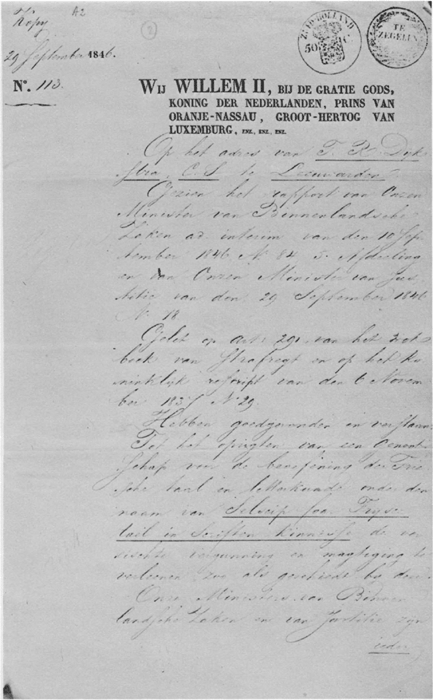 Kopy
29 September 1846.
N°. 113.
ZUID-HOLLAND
50 C
TE
ZEGELEN
WIJ WILLEM II, BIJ DE GRATIE GODS,
KONING DER NEDERLANDEN, PRINS VAN
ORANJE-NASSAU, GROOT-HERTOG VAN
LUXEMBURG, ENZ., ENZ., ENZ.
Op het adres van T. R. Dyk
stra C. S. te Leeuwarden
Gezien het rapport van Onzen
Minister van Binnenlandsche
Zaken ad interim van den 10 Sep
tember 1846 N 84 5e Afdeeling
en van Onzen Minister van Jus
titie van den 29 September 1846
N 18
Gelet op art. 291 van het Wet
boek van Strafregt en op het Ko
ninklijk rescript van den 6 Novem
ber 183 N 29
Hebben goedgevonden en verstaan:
Tot het oprigten van een Genoot
schap voor de beoefening der Frie
sche taal en letterkunde onder den
naam van Selscip foar Fryse
tael in Scriften kinnesse de ver
eischte vergunning en magtiging te
verleenen zoo als geschiedt by deze
Onze Ministers van Binnen
landsche Zaken en van Justitie zijn
ieder